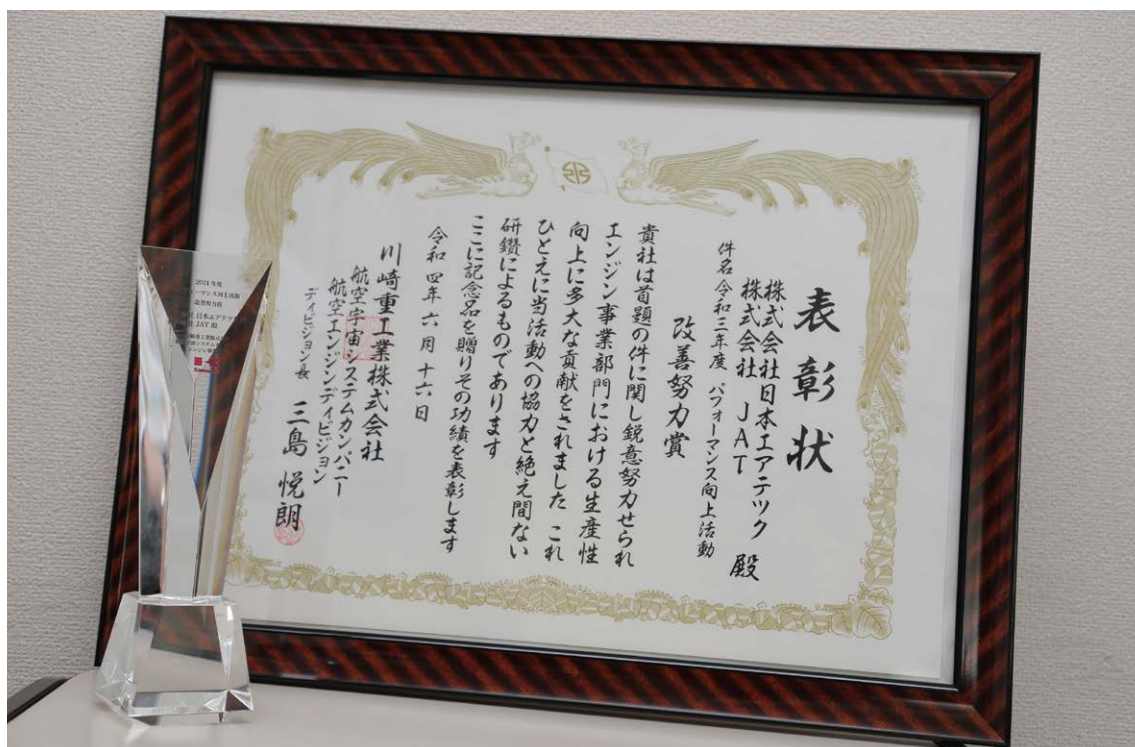 表彰状
株式会社日本エアテック
株式会社 JAT 殿
件名 令和三年度 パフォーマンス向上活動
改善努力賞
貴社は首題の件に関し鋭意努力せられ
エンジン事業部門における生産性
向上に多大な貢献をされました これ
ひとえに当活動への協力と絶え間ない
研鑽によるものであります
ここに記念品を贈りその功績を表彰します
令和四年六月十六日
川崎重工業株式会社
航空宇宙システムカンパニー
航空エンジンディビジョン
ディビジョン長 三島悦朗
2021年度
改善努力賞